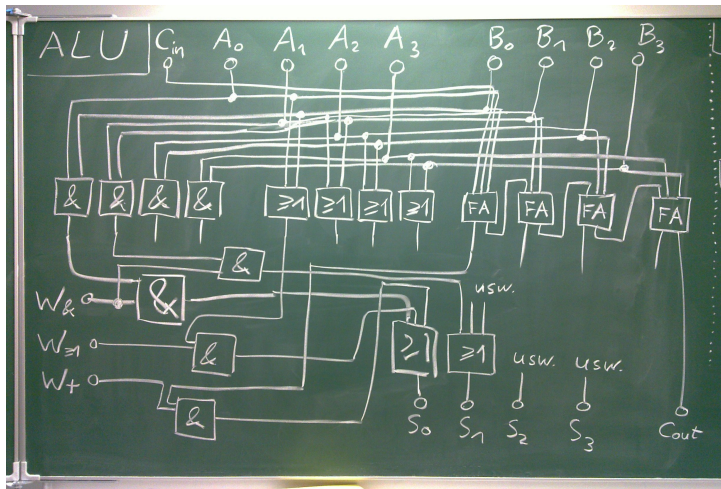 ALU Cin A0 A1 A2 A3 B0 B1 B2 B3
& & & & ≥1 ≥1 ≥1 ≥1 FA FA FA FA
&
W& & usw.
W≥1 & ≥1 ≥1 usw. usw.
W+ &
S0 S1 S2 S3 Cout